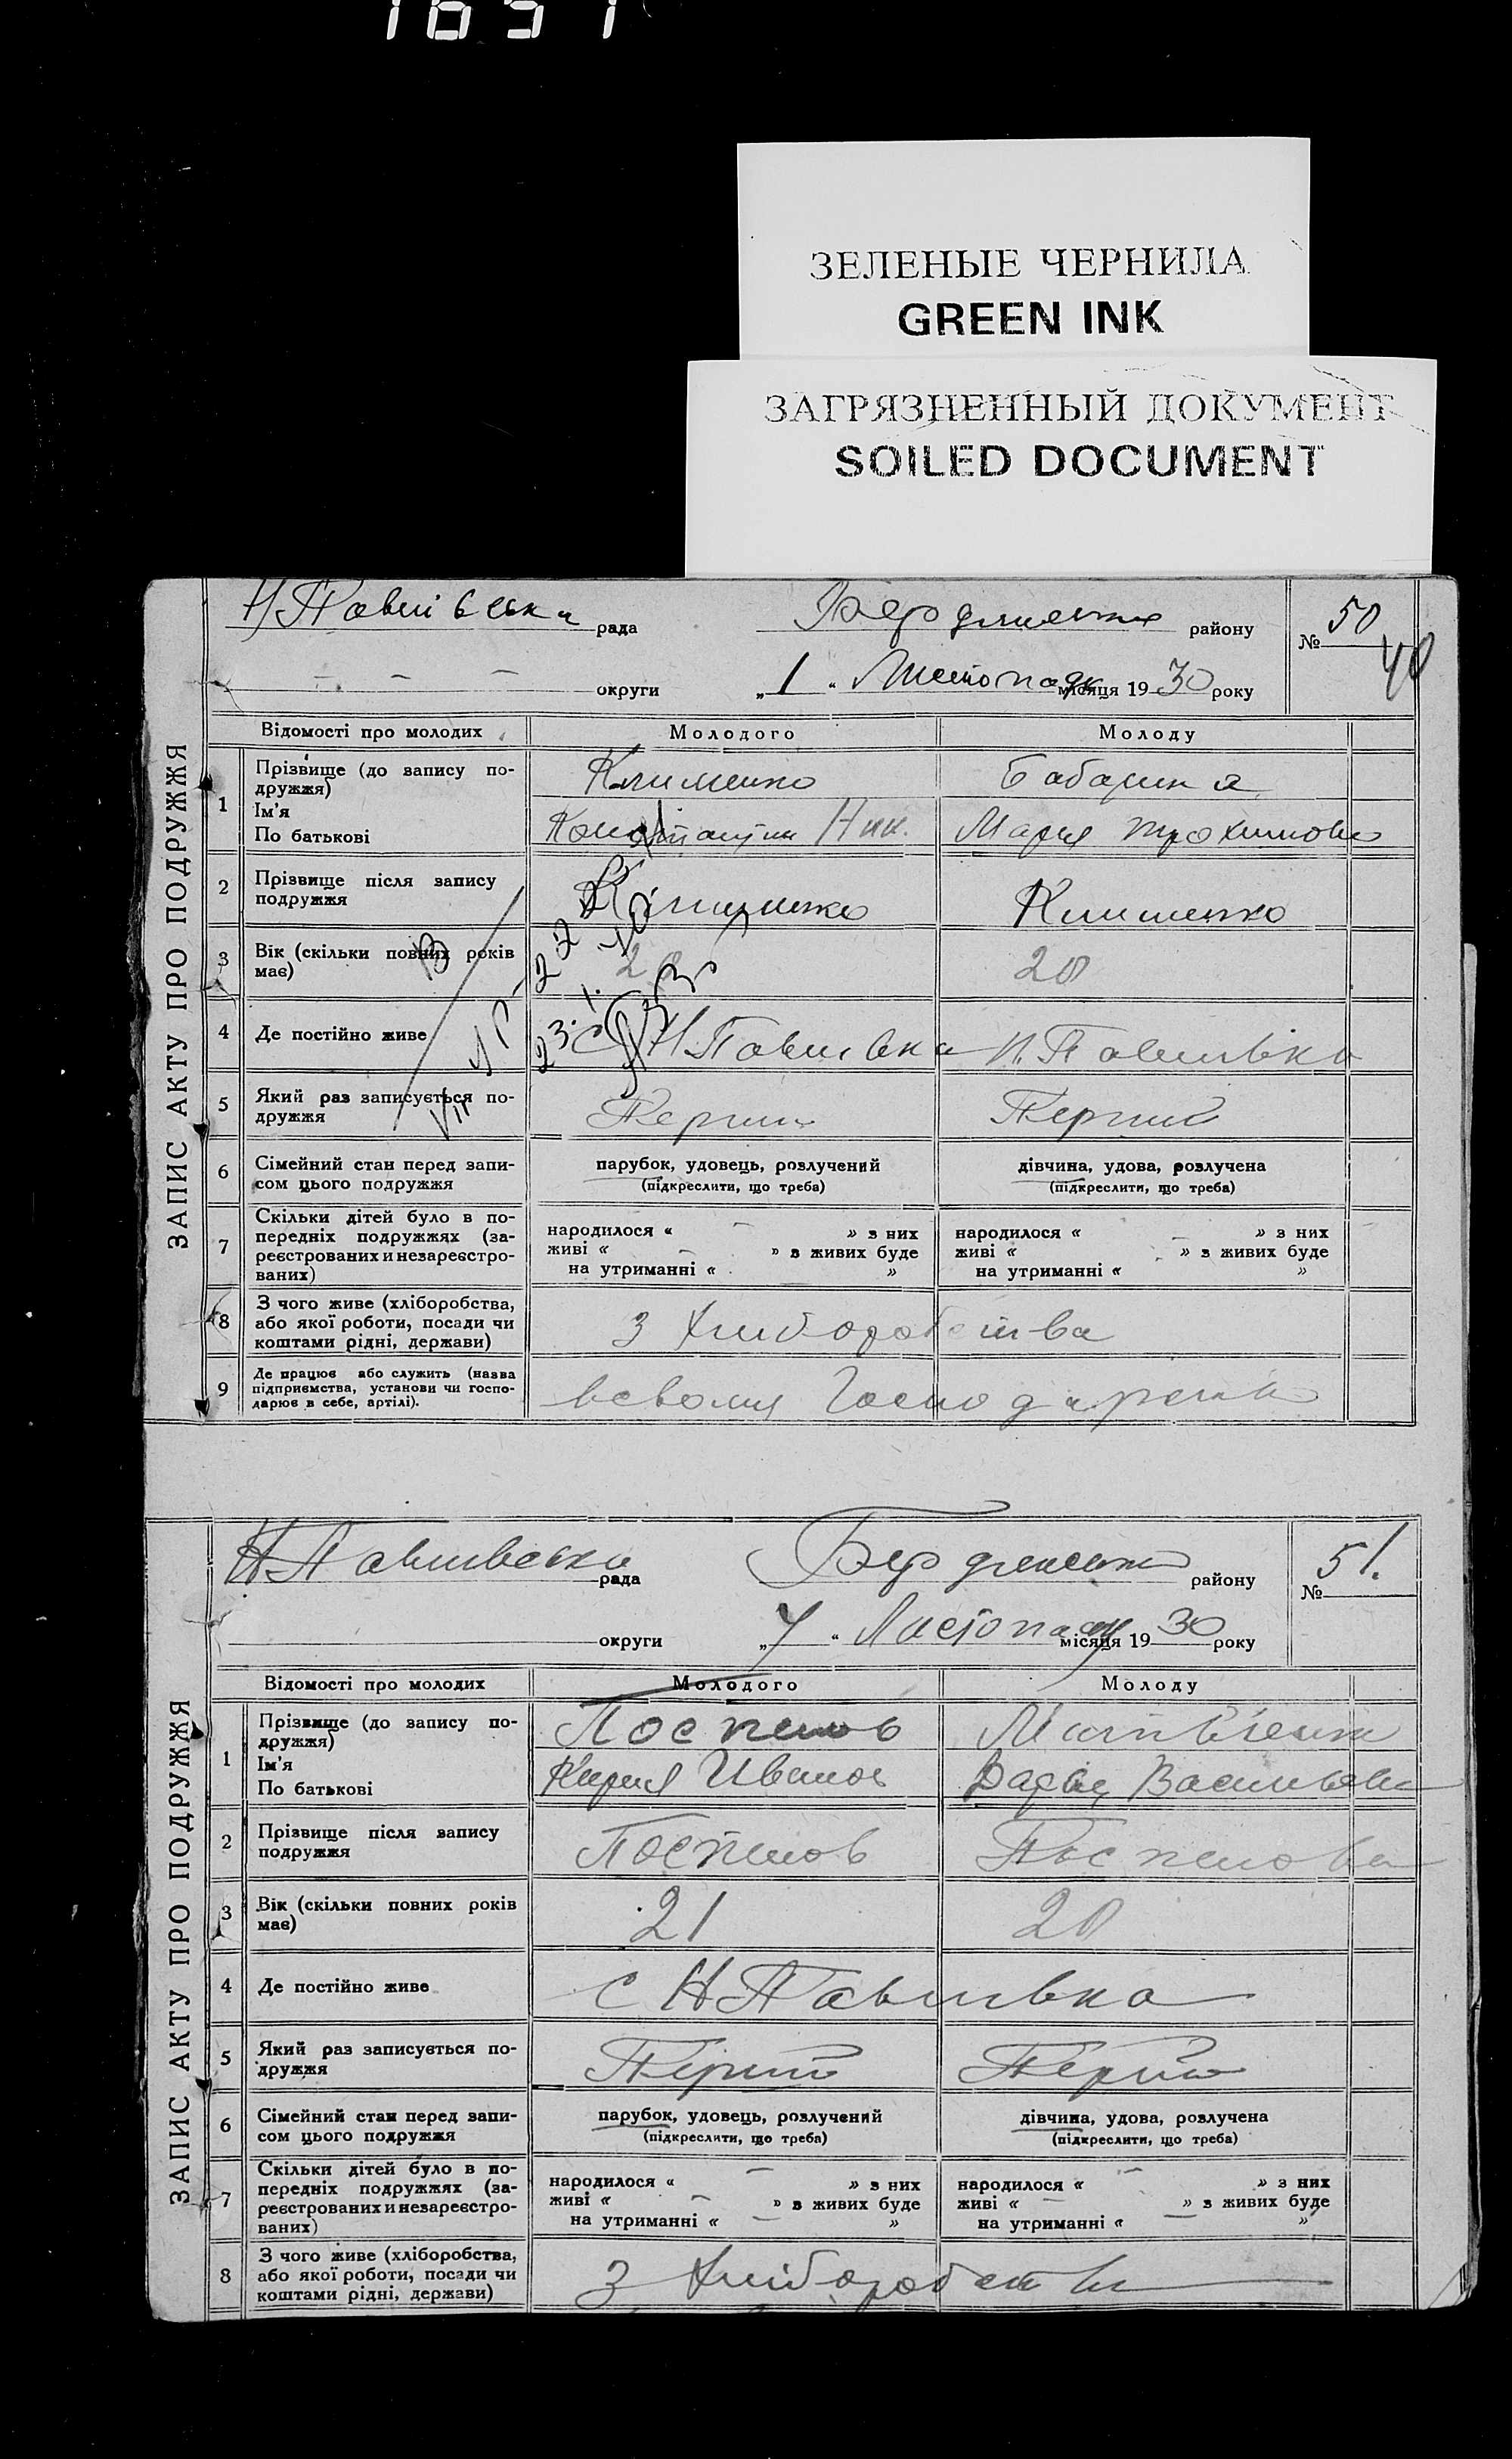 1651
ЗЕЛЕНЫЕ ЧЕРНИЛА
GREEN INK
ЗАГРЯЗНЕННЫЙ ДОКУМЕНТ
SOILED DOCUMENT
ЗАПИС АКТУ ПРО ПОДРУЖЖЯ
Н Павлівська рада Бердянського району № 50
40
округи „1“ Листопада місяця 1930 року
Відомості про молодих Молодого Молоду
1 Прізвище (до запису по- Клименко Бабарика
дружжя)
Ім'я
По батькові Константин Ник. Мария Трохимовна
2 Прізвище після запису Клименко Клименко
подружжя
3 Вік (скільки повних років 20 20
має)
4 Де постійно живе с Н.Павлівка Н.Павлівка
5 Який раз записується по- Перший Перший
дружжя
6 Сімейний стан перед запи- парубок, удовець, розлучений дівчина, удова, розлучена
сом цього подружжя (підкреслити, що треба) (підкреслити, що треба)
7 Скільки дітей було в по-
передніх подружжях (за- народилося « — » з них народилося « — » з них
реєстрованих и незареєстро- живі « — » з живих буде живі « » з живих буде
ваних) на утриманні « » на утриманні « »
8 З чого живе (хліборобства,
або якої роботи, посади чи З хліборобства
коштами рідні, держави)
9 Де працює або служить (назва
підприємства, установи чи госпо-
дарює в себе, артілі).
ЗАПИС АКТУ ПРО ПОДРУЖЖЯ
Н Павлівська рада Бердянського району № 51.
округи „7“ Листопаду місяця 1930 року
Відомості про молодих Молодого Молоду
1 Прізвище (до запису по- Поспелов Матвієнко
дружжя)
Ім'я
По батькові Кирил Иванов Дарья Васильевна
2 Прізвище після запису Поспелов Поспелова
подружжя
3 Вік (скільки повних років 21 20
має)
4 Де постійно живе с Н Павлівка
5 Який раз записується по- Перший Перший
дружжя
6 Сімейний стан перед запи- парубок, удовець, розлучений дівчина, удова, розлучена
сом цього подружжя (підкреслити, що треба) (підкреслити, що треба)
7 Скільки дітей було в по-
передніх подружжях (за- народилося « — » з них народилося « — » з них
реєстрованих и незареєстро- живі « — » з живих буде живі « — » з живих буде
ваних) на утриманні « — » на утриманні « — »
8 З чого живе (хліборобства,
або якої роботи, посади чи З хліборобства
коштами рідні, держави)